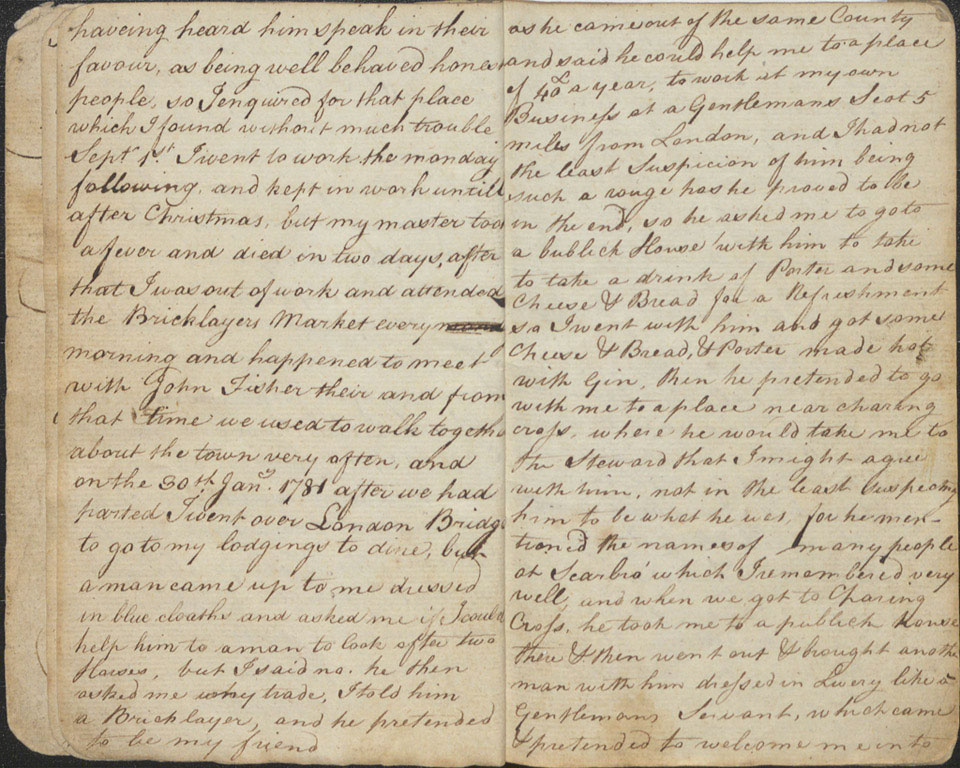 haveing heard him speak in their
favour, as being well behaved hones
people, so I enquired for that place
which I found without much trouble
Septr 1st I went to work the monday
following, and kept in work untill
after Christmas, but my master took
a fever and died in two days, after
that I was out of work and attended
the Bricklayers Market every
morning and happened to meet
with John Fisher their and from
that time we used to walk togethe
about the town very often, and
on the 30th Jany 1781 after we had
parted I went over London Bridge
to go to my lodgings to dine, but
a man came up to me dressed
in blue cloaths and asked me if I could
help him to a man to look after two
Horses, but I said no. he then
asked me my trade, I told him
a Bricklayer, and he pretended
to be my friend
as he came out of the same County
and said he could help me to a place
of 40£ a year, to work at my own
Business at a Gentlemans Seat 5
miles from London, and I had not
the least Suspicion of him being
such a rouge has he proved to be
in the end, so he asked me to go to
a bublick House with him to take
to take a drink of Porter and some
Cheese & Bread for a Refreshment
so I went with him and got some
Cheese & Bread, & Porter made hot
with Gin, then he pretended to go
with me to a place near charing
cross, where he would take me to
the Steward that I might agree
with him, not in the least suspecting
him to be what he was, for he men-
tioned the names of many people
at Scarbro' which I remembered very
well, and when we got to Charing
Cross, he took me to a publick House
there & then went out & brought anothe
man with him dressed in Livery like a
Gentlemans Servant, which came
& pretended to welcome me into